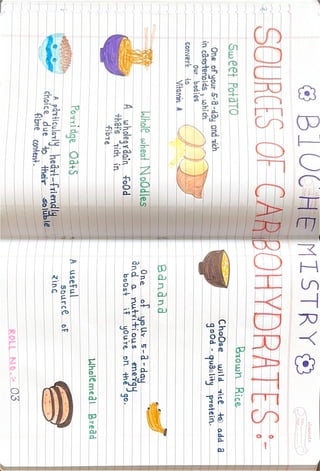 BIOCHEMISTRY
SOURCES OF CARBOHYDRATES :-
Sweet Potato
One of your 5-a-day and rich
in carotenoids, which
our bodies
convert in
Vitamin A
Brown Rice
Choose wild rice to add a
good-quality protein.
Whole wheat Noodles
A wholegrain food
that's rich in
fibre
Banana
One of your 5-a-day
and a nutritious energy
boost if you're on the go.
Porridge Oats
A particularly heart-friendly
choice due to their soluble
fibre content.
Wholemeal Bread
A useful
source of
zinc
ROLL NO.:- 03